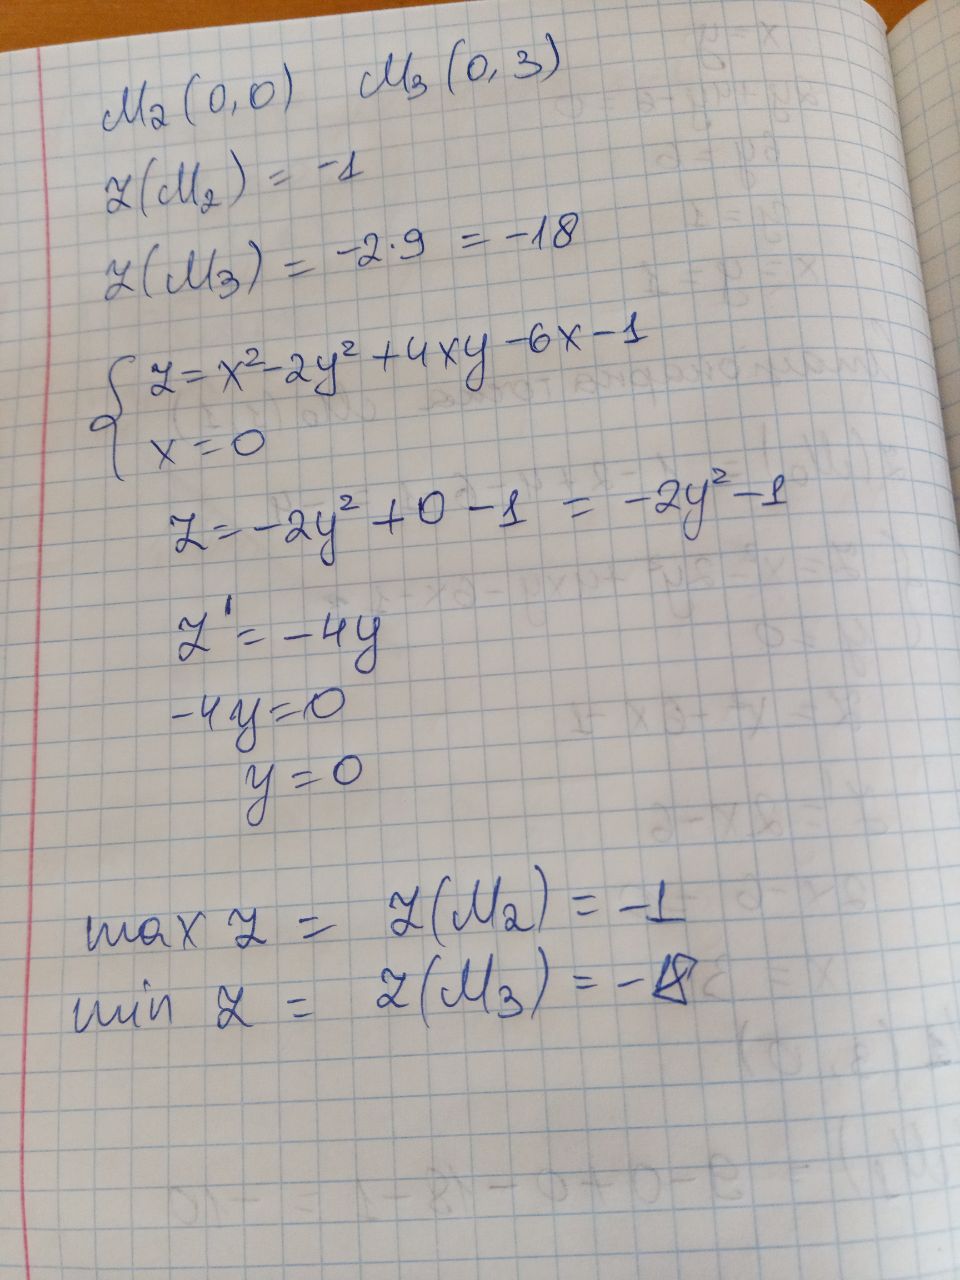 M₂(0,0) M₃(0,3)
Z(M₂) = -1
Z(M₃) = -2·9 = -18
{ Z = x² - 2y² + 4xy - 6x - 1
x = 0
Z = -2y² + 0 - 1 = -2y² - 1
Z' = -4y
-4y = 0
y = 0
max Z = Z(M₂) = -1
min Z = Z(M₃) = -18